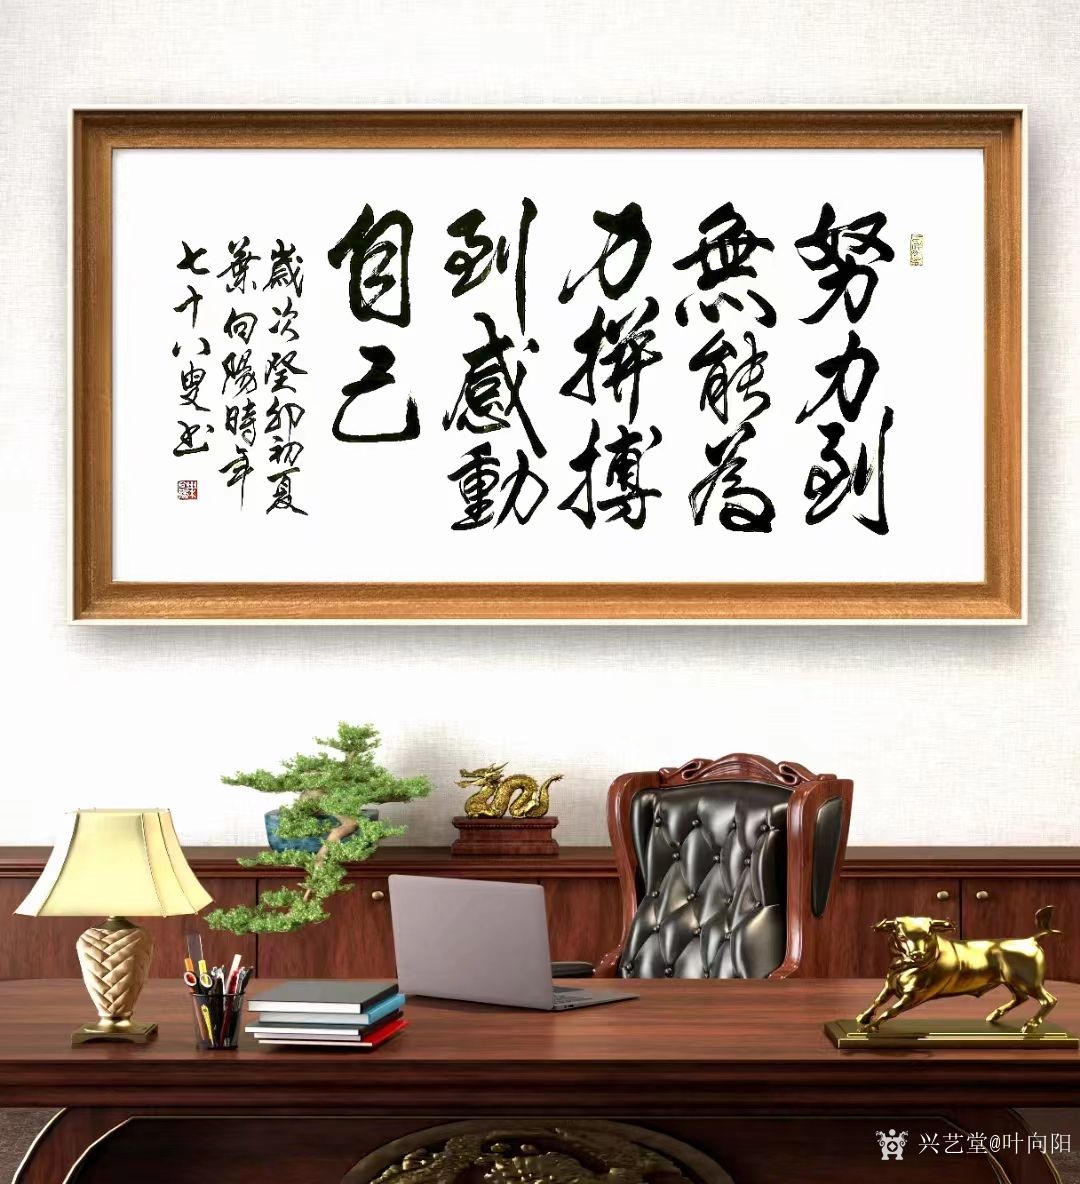 努力到
無能為
力拼搏
到感動
自己
歲次癸卯初夏
葉向陽時年
七十八叟书
兴艺堂@叶向阳